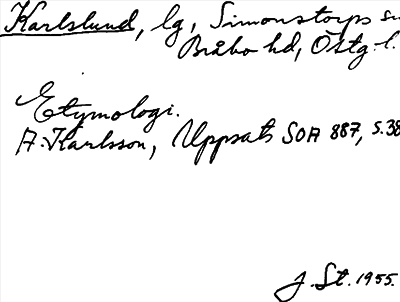 Karlslund, lg, Simonstorps sn
Bråbo hd, Östg-l.
Etymologi.
A. Karlsson, Uppsats SOA 887, S.38
J. St. 1955.